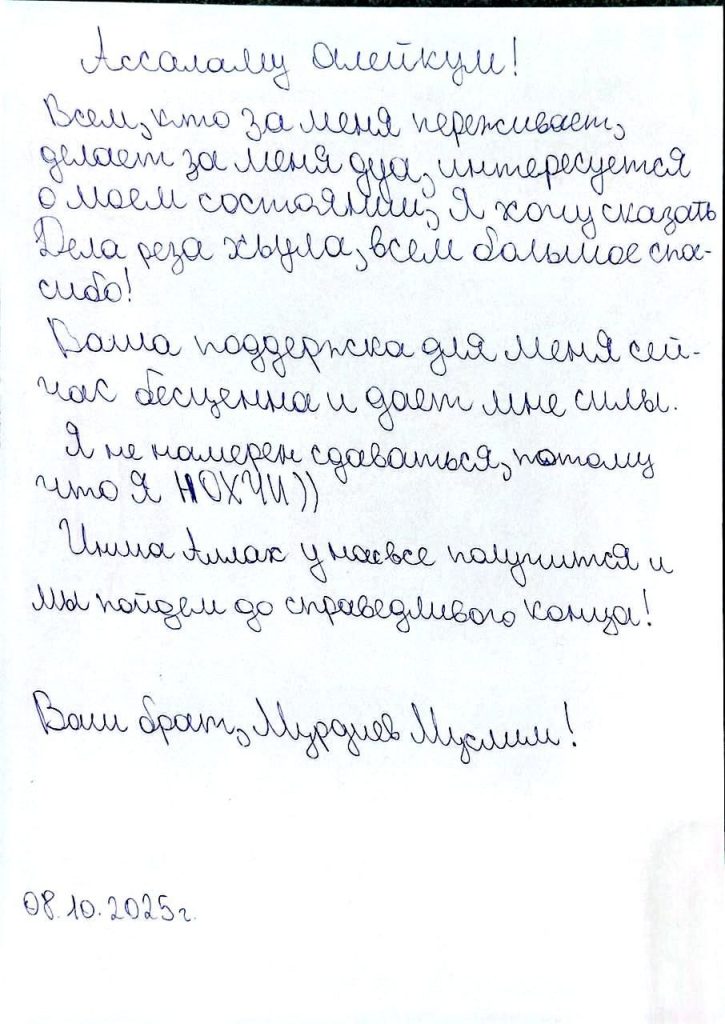 Ассаламу Алейкум!
Всем, кто за меня переживает,
делает за меня дуа, интересуется
о моем состоянии, Я хочу сказать
Дела реза хьула, всем большое спа-
сибо!
Ваша поддержка для меня сей-
час бесценна и дает мне силы.
Я не намерен сдаваться, потому
что Я НОХЧИ))
Инша Аллах у нас все получится и
мы пойдем до справедливого конца!
Ваш брат, Мурдиев Муслим!
08.10.2025г.